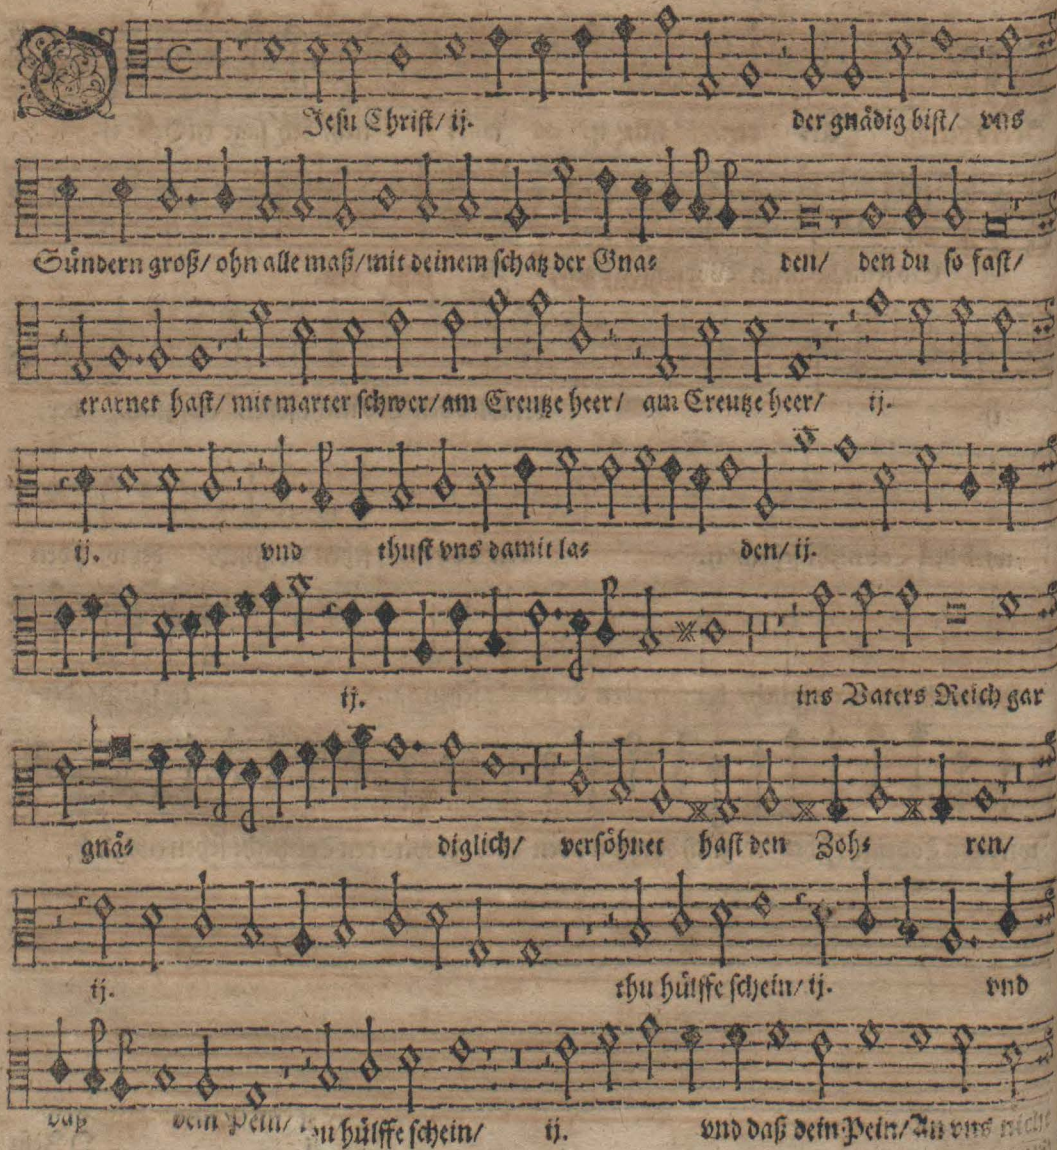 O Jesu Christ/ ij. der gnädig bist/ vns
Sündern groß/ ohn alle maß/ mit deinem schatz der Gna⸗ den/ den du so fast/
erarnet hast/ mit marter schwer/ am Creutze heer/ am Creutze heer/ ij.
ij. vnd thust vns damit la⸗ den/ ij.
ij. ins Vaters Reich gar
gnä⸗ diglich/ versöhnet hast den Zoh⸗ ren/
ij. thu hülffe schein/ ij. vnd
daß dein Pein/ hülffe schein/ ij. vnd daß dein Pein/ An vns nicht